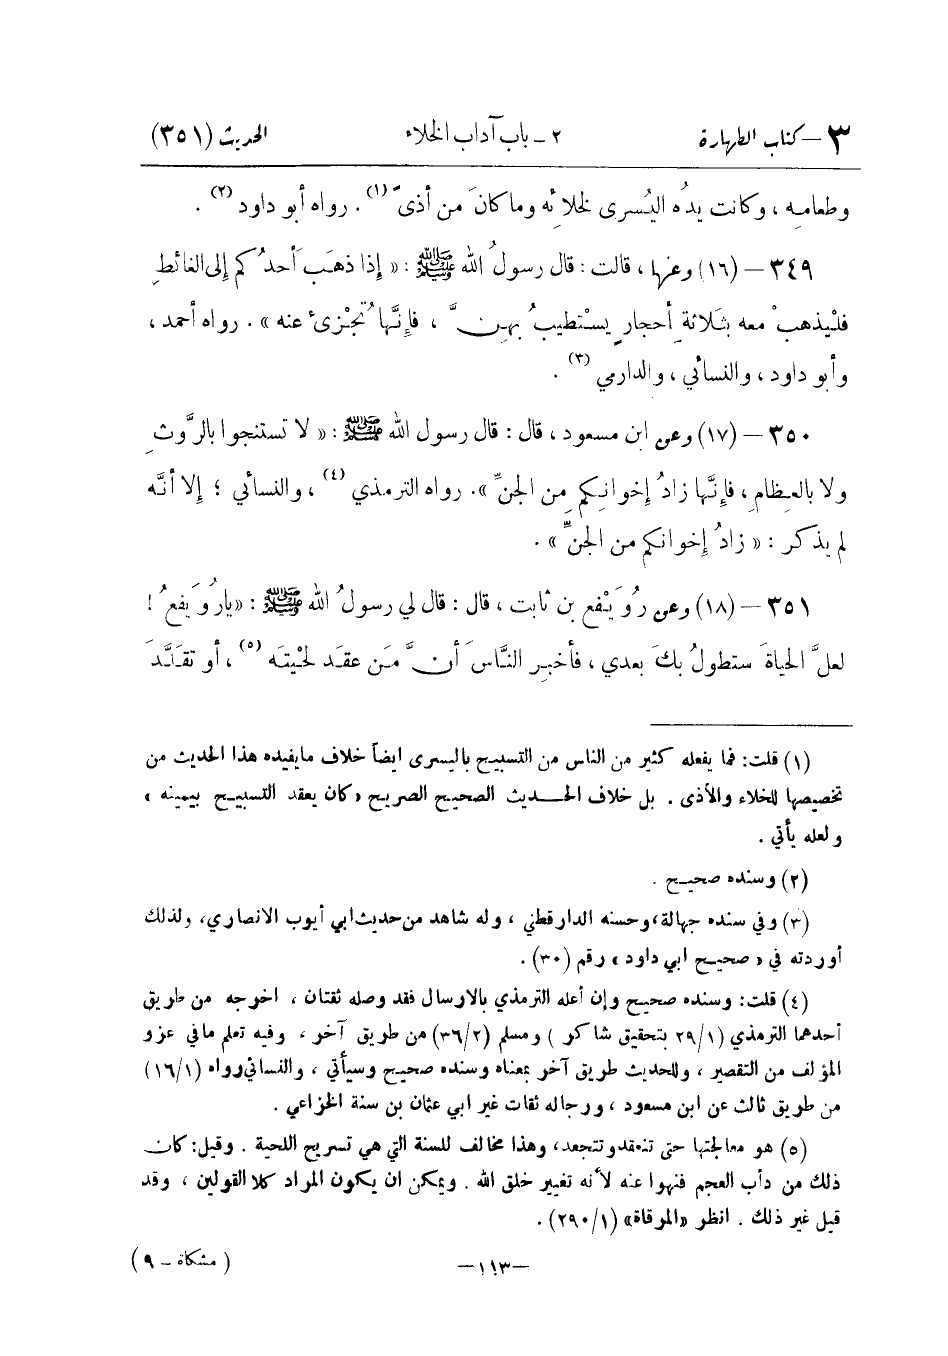 ٣ – كتاب الطهارة ٢ – باب آداب الخلاء الحديث (٣٥١)
وطعامِه ، وكانت يدُه اليُسرى لخلائِه وما كانَ من أذىً (١) . رواه أبو داود (٢) .
٣٤٩ – (١٦) وعنها ، قالت : قال رسولُ الله ﷺ : « إِذا ذهبَ أحدُكم إِلى الغائطِ
فلْيذهبْ معه بثَلاثةِ أحجارٍ يسْتطيبُ بهِنَّ ، فإِنَّها تُجْزىءُ عنه » . رواه أحمد ،
وأبو داود ، والنسائي ، والدارمي (٣) .
٣٥٠ – (١٧) وعن ابن مسعود ، قال : قال رسول الله ﷺ : « لا تستنجوا بالرَّوثِ
ولا بالعِظامِ ، فإِنَّها زادُ إِخوانِكم مِن الجنِّ » . رواه الترمذي (٤) ، والنسائي ؛ إِلا أنَّه
لم يذكر : « زادُ إِخوانكم من الجنِّ » .
٣٥١ – (١٨) وعن رُوَيْفِع بن ثابت ، قال : قال لي رسولُ الله ﷺ : « يا رُوَيفعُ !
لعلَّ الحياةَ ستطولُ بكَ بعدي ، فأخبِر النَّاسَ أنَّ مَن عقَد لحْيتَه (٥) ، أو تقلَّدَ
(١) قلت: فما يفعله كثير من الناس من التسبيح باليسرى ايضاً خلاف مايفيده هذا الحديث من
تخصيصها للخلاء والأذى . بل خلاف الحديث الصحيح الصريح «كان يعقد التسبيح بيمينه »
ولعله يأتي .
(٢) وسنده صحيح .
(٣) وفي سنده جهالة، وحسنه الدارقطني ، وله شاهد من حديث ابي أيوب الانصاري، ولذلك
أوردته في « صحيح ابي داود » رقم (٣٠) .
(٤) قلت: وسنده صحيح وإن أعله الترمذي بالارسال فقد وصله ثقتان ، اخرجه من طريق
أحدهما الترمذي (٢٩/١ بتحقيق شاكر ) ومسلم (٣٦/٢) من طريق آخر ، وفيه تعلم مافي عزو
المؤلف من التقصير ، وللحديث طريق آخر بمعناه وسنده صحيح وسيأتي ، والنسائي رواه (١٦/١)
من طريق ثالث عن ابن مسعود ، ورجاله ثقات غير ابي عثمان بن سنة الخزاعي .
(٥) هو معالجتها حتى تنعقد وتتجعد، وهذا مخالف للسنة التي هي تسريح اللحية . وقيل: كان
ذلك من دأب العجم فنهوا عنه لأنه تغيير خلق الله . ويمكن ان يكون المراد كلا القولين ، وقد
قيل غير ذلك . انظر «المرقاة» (٢٩٠/١) .
–١١٣– ( مشكاة – ٩ )